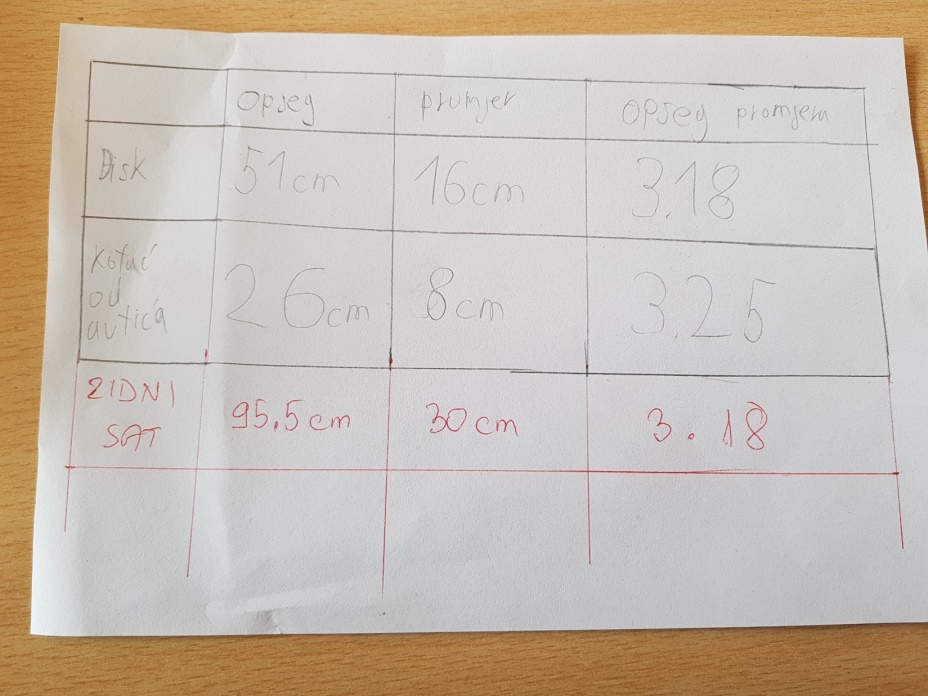 opseg promjer opseg promjera
Disk 51cm 16cm 3.18
kotač
od
autića 26cm 8cm 3.25
ZIDNI
SAT 95.5cm 30cm 3.18